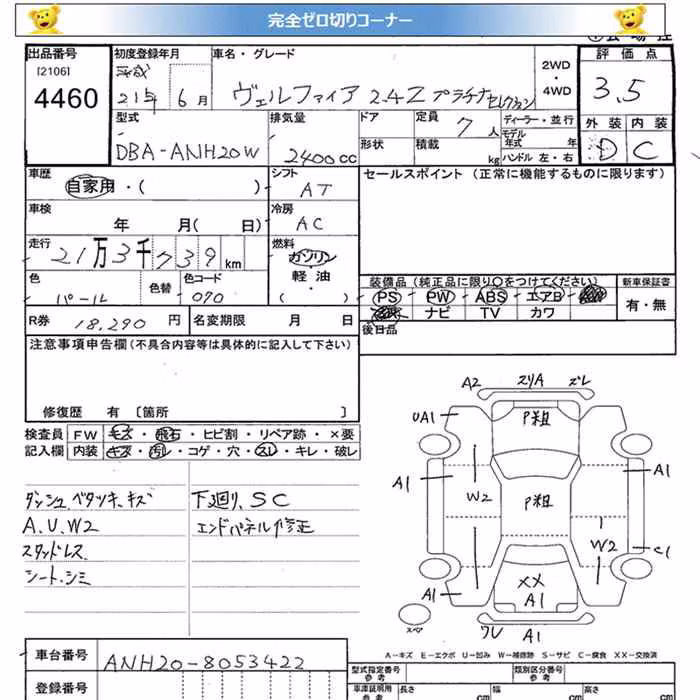 完全ゼロ切りコーナー
出品番号
[2106]
4460
初度登録年月
平成
21年 6月
車名・グレード
ヴェルファイア 2.4Z プラチナセレクション
2WD
・
4WD
評価点
3.5
外装 内装
D C
型式
DBA-ANH20W
排気量
2400cc
ドア
形状
定員
7人
積載
kg
ディーラー・並行
モデル
年式 年
ハンドル 左・右
車歴
自家用・( )
シフト
AT
車検
年 月( 日)
冷房
AC
走行
21万3千739km
燃料
ガソリン
軽油
( )
色
パール
色替
色コード
070
R券 18,290円
名変期限 月 日
セールスポイント(正常に機能するものに限ります)
装備品(純正品に限り○をつけてください)
PS PW ABS エアB
ナビ TV カワ
新車保証書
有・無
後日品
注意事項申告欄(不具合内容等は具体的に記入して下さい)
修復歴 有 [箇所 ]
検査員 FW キズ・飛石・ヒビ割・リペア跡・×要
記入欄 内装 キズ・汚レ・コゲ・穴・スレ・キレ・破レ
ダッシュ、ベタツキ、キズ
A.U.W2
スタッドレス.
シート.シミ
下廻り、SC
エンドパネル修正
A2 スリA ズレ
UA1
P粗
A1
W2
P粗
A1
W2
C1
XX
A1
A1
A1
スペア
ワレ A1
A-キズ E-エクボ U-凹み W-補修跡 S-サビ C-腐食 XX-交換済
車台番号
ANH20-8053422
登録番号
型式指定番号
参考
類別区分番号
参考
車庫証明用
参考
長さ cm
幅 cm
高さ cm